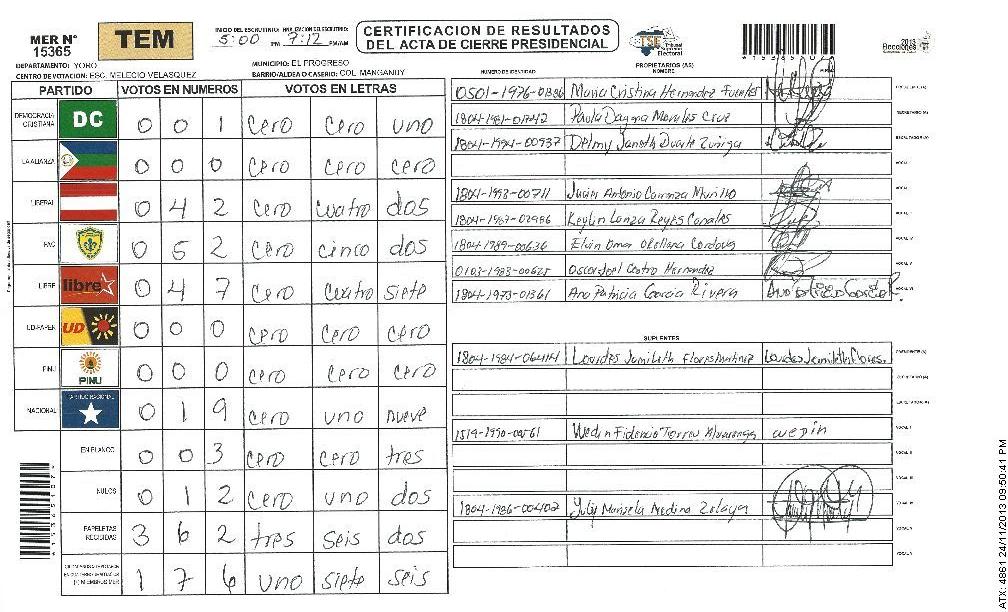 MER N° 15365
TEM
INICIO DEL ESCRUTINIO:
5:00 PM 7:12 PM/AM
CERTIFICACION DE RESULTADOS
DEL ACTA DE CIERRE PRESIDENCIAL
TSE Tribunal Supremo Electoral
2013 Elecciones
DEPARTAMENTO: YORO
MUNICIPIO: EL PROGRESO
CENTRO DE VOTACION: ESC. MELECIO VELASQUEZ
BARRIO/ALDEA O CASERIO: COL. MANGANDY
PARTIDO VOTOS EN NUMEROS VOTOS EN LETRAS
DEMOCRACIA CRISTIANA DC 0 0 1 cero cero uno
LA ALIANZA 0 0 0 cero cero cero
LIBERAL 0 4 2 cero cuatro dos
PAC 0 5 2 cero cinco dos
LIBRE libre 0 4 7 cero cuatro siete
UD-FAPER UD 0 0 0 cero cero cero
PINU PINU 0 0 0 cero cero cero
NACIONAL PARTIDO NACIONAL 0 1 9 cero uno nueve
EN BLANCO 0 0 3 cero cero tres
NULOS 0 1 2 cero uno dos
PAPELETAS RECIBIDAS 3 6 2 tres seis dos
1 7 6 uno siete seis
NUMERO DE IDENTIDAD
PROPIETARIOS (AS)
NOMBRE
FIRMA
0501-1976-01386 Maria Cristina Hernandez Fuentes
1804-1981-01742 Paula Dayana Morales Cruz
1804-1994-00937 Delmy Janeth Duarte Zuniga
1804-1993-00711 Junior Antonio Carranza Murillo
1804-1987-02986 Keylin Lanza Reyes Canales
1804-1989-00636 Elvin Omar Orellana Cordova
0103-1983-00625 Oscar Joel Castro Hernandez
1804-1973-01361 Ana Patricia Garcia Rivera
SUPLENTES
1804-1984-06414 Lourdes Jamileth Flores Martinez Lourdes Jamileth Flores
PRESIDENTE (A)
1519-1990-00561 Wedin Fidencio Torres Alvarenga wepin
VOCAL I
1804-1986-00402 July Marisela Medina Zelaya
ATX: 4861 24/11/2013 09:50:41 PM